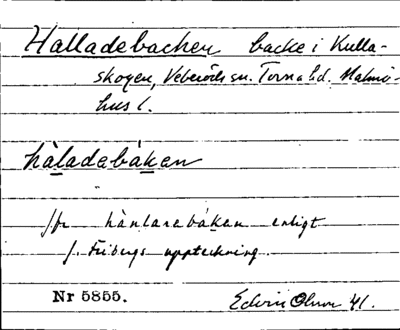 Halladebacken backe i Kulla-
skogen, Veberöds sn. Torna hd. Malmö-
hus l.
hàladebáken
jfr hàntarebáken enligt
J. Fribergs uppteckning.
Nr 5855.
Edvin Ohm 41.